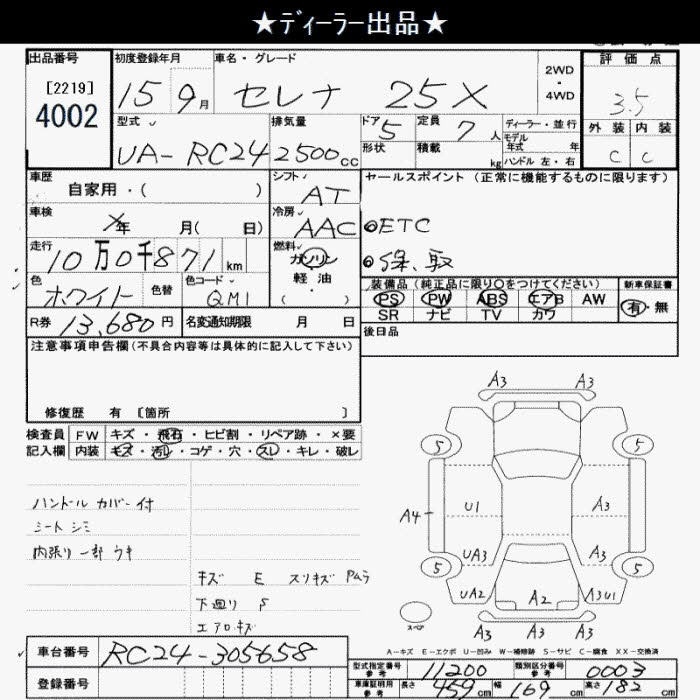 ★ディーラー出品★
出品番号
[2219]
4002
初度登録年月
15 9月
車名・グレード
セレナ 25X
2WD
・
4WD
評価点
3.5
外装 内装
C C
型式
UA-RC24
排気量
2500cc
ドア 5
形状
定員 7人
積載 kg
ディーラー・並行
モデル
年式 年
ハンドル 左・右
車歴
自家用・( )
シフト
AT
セールスポイント (正常に機能するものに限ります)
車検
年 月( 日)
冷房
AAC
ETC
走行
10万0千871km
燃料
ガソリン
軽油
( )
色
ホワイト
色替
色コード
QM1
装備品(純正品に限り〇をつけてください)
新車保証書
PS PW ABS エアB AW
SR ナビ TV カワ
有・無
R券 13,680円
名変通知期限 月 日
後日品
注意事項申告欄(不具合内容等は具体的に記入して下さい)
修復歴 有 [箇所 ]
検査員 FW キズ・飛石・ヒビ割・リペア跡・×要
記入欄 内装 キズ・汚レ・コゲ・穴・スレ・キレ・破レ
ハンドル カバー付
シート シミ
内張り 一部 ウキ
キズ E スリキズ
下廻り S
エアロ キズ
A3 A3
5 5
U1 A3
A4
UA3 A3
5 5
UA2 A2 A3U1
スペア
A3 A3 A3
A-キズ E-エクボ U-凹み W-補修跡 S-サビ C-腐食 XX-交換済
車台番号 RC24-305658
登録番号
型式指定番号
参考
11200
類別区分番号
参考
0003
車庫証明用
参考
長さ 459cm 幅 169cm 高さ 182cm